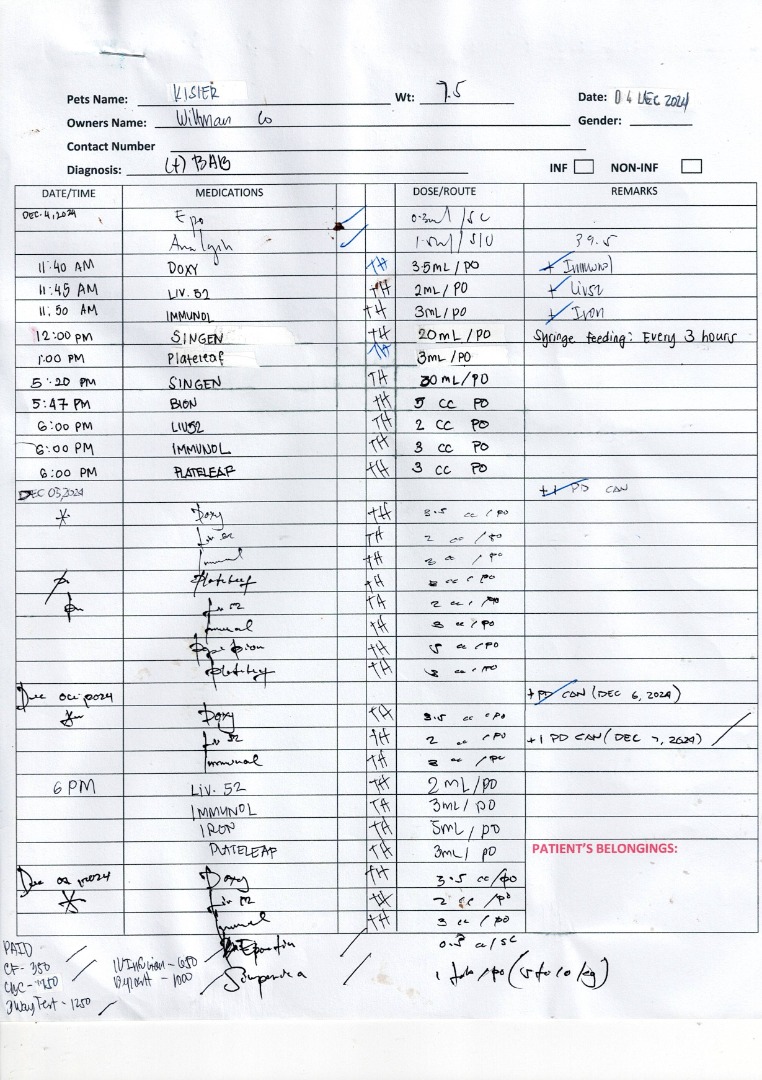 Pets Name: KISIER Wt: 7.5 Date: 04 DEC 2024
Owners Name: Willman Co Gender:
Contact Number
Diagnosis: (+) BAB INF NON-INF
DATE/TIME MEDICATIONS DOSE/ROUTE REMARKS
DEC. 4, 2024 Epo 0.3ml / SC
39.5
11:40 AM DOXY TH 3.5mL / PO + Immunol
11:45 AM LIV. 52 TH 2mL / PO + Liv52
11:50 AM IMMUNOL TH 3mL / PO + Iron
12:00 PM SINGEN TH 20mL / PO Syringe feeding: Every 3 hours
1:00 PM Plateleaf TH 3mL / PO
5:20 PM SINGEN TH 30mL/PO
5:47 PM BION TH 5 cc PO
6:00 PM LIV52 TH 2 cc PO
6:00 PM IMMUNOL TH 3 cc PO
6:00 PM PLATELEAP TH 3 cc PO
DEC 03, 2024 +1 PD CAN
Doxy TH 3.5 cc / po
Liv 52 TH 2 cc / po
TH 3 cc / po
TH 3 cc / po
Liv 52 TH 2 cc / po
TH 3 cc / po
TH 5 cc / po
TH 3 cc / po
+ PD CAN (DEC 6, 2024)
Doxy TH 3.5 cc / po
Liv 52 TH 2 cc / po +1 PD CAN (DEC 7, 2024)
Immunol TH 3 cc / po
6 PM LIV. 52 TH 2 mL / PO
IMMUNOL TH 3mL / PO
IRON TH 5mL / PO
PLATELEAP TH 3mL / PO PATIENT'S BELONGINGS:
Doxy TH 3.5 cc/po
Liv 52 TH 2 cc / po
TH 3 cc / po
PAID
CF - 350 IV Infusion - 650
CBC - Deposit - 1000
3 Way Test - 1250 1 tab / po (5 to 10 kg)